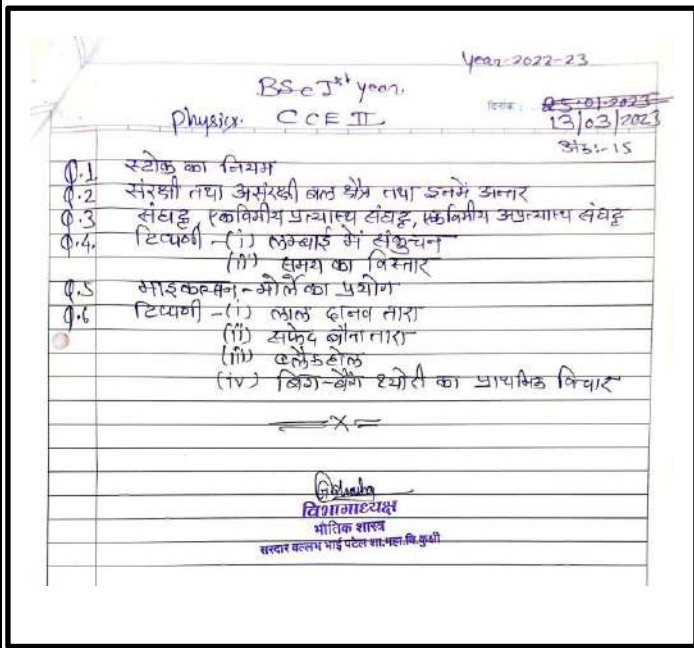 Year-2022-23
BSc Ist year.
दिनांक : 25-01-2023
Physics. CCE II
13/03/2023
अंक:-15
Q.1 स्टोक का नियम
Q.2 संरक्षी तथा असंरक्षी बल क्षेत्र तथा इनमें अन्तर
Q.3 संघट्ट, एकविमीय प्रत्यास्थ संघट्ट, एकविमीय अप्रत्यास्थ संघट्ट
Q.4. टिप्पणी - (i) लम्बाई में संकुचन
(ii) समय का विस्तार
Q.5 माइकल्सन-मोर्ले का प्रयोग
Q.6 टिप्पणी - (i) लाल दानव तारा
(ii) सफेद बौना तारा
(iii) ब्लैकहोल
(iv) बिग-बैंग थ्योरी का प्राथमिक विचार
=X=
विभागाध्यक्ष
भौतिक शास्त्र
सरदार वल्लभ भाई पटेल शा.महा.वि.कुक्षी